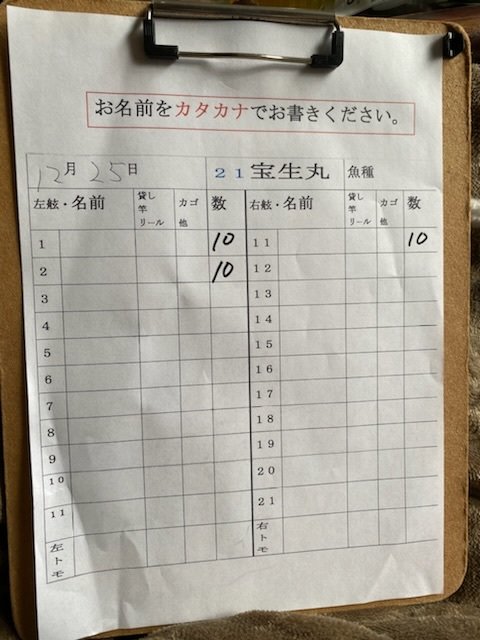 お名前をカタカナでお書きください。
12月25日 21宝生丸 魚種
左舷・名前 貸し竿リール カゴ他 数 右舷・名前 貸し竿リール カゴ他 数
1 10 11 10
2 10 12
3 13
4 14
5 15
6 16
7 17
8 18
9 19
10 20
11 21
左トモ 右トモ